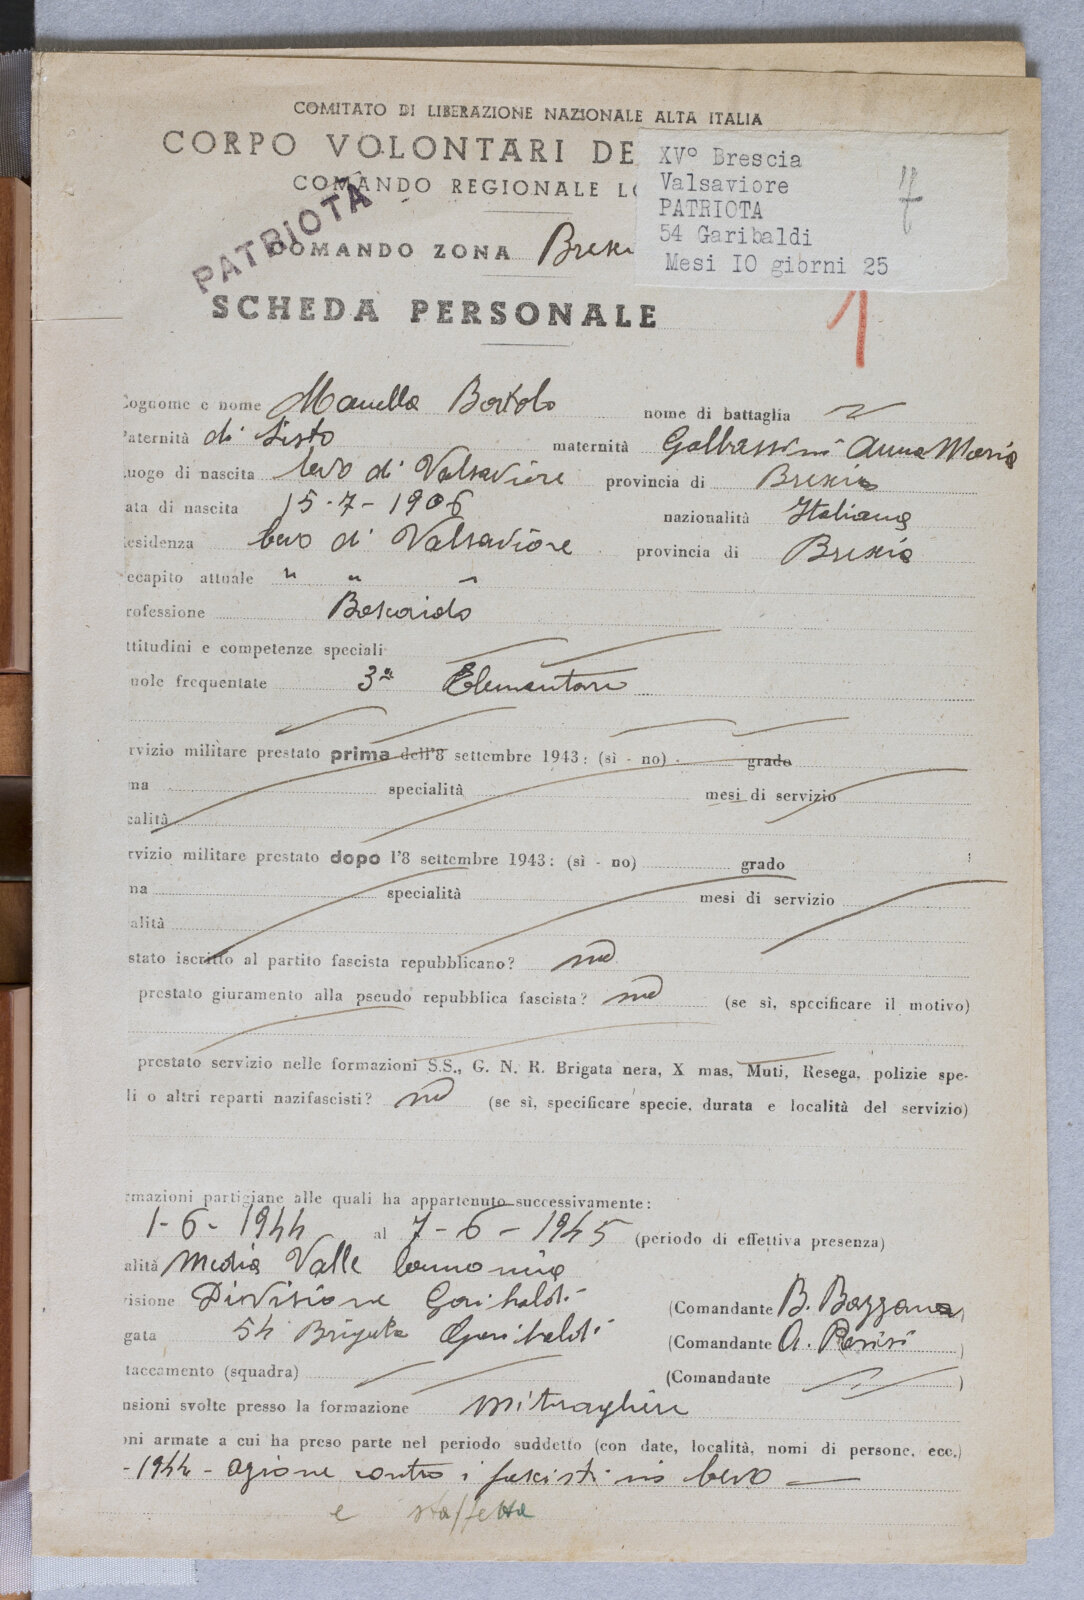 COMITATO DI LIBERAZIONE NAZIONALE ALTA ITALIA
CORPO VOLONTARI DE
COMANDO REGIONALE LO
XV° Brescia
Valsaviore
PATRIOTA
54 Garibaldi
Mesi IO giorni 25
PATRIOTA
COMANDO ZONA Bresc
SCHEDA PERSONALE
1
Cognome e nome Manella Bortolo nome di battaglia
Paternità di Sisto maternità Galbassini Anna Maria
uogo di nascita Cevo di Valsaviore provincia di Brescia
ata di nascita 15-7-1906 nazionalità Italiana
esidenza Cevo di Valsaviore provincia di Brescia
ecapito attuale " " "
rofessione Boscaiolo
ttitudini e competenze speciali
uole frequentate 3ª Elementare
rvizio militare prestato prima dell'8 settembre 1943: (sì - no) grado
ma specialità mesi di servizio
calità
rvizio militare prestato dopo l'8 settembre 1943: (sì - no) grado
na specialità mesi di servizio
alità
stato iscritto al partito fascista repubblicano? no
prestato giuramento alla pseudo repubblica fascista? no (se sì, specificare il motivo)
prestato servizio nelle formazioni S.S., G. N. R. Brigata nera, X mas, Muti, Resega, polizie spe-
li o altri reparti nazifascisti? no (se sì, specificare specie, durata e località del servizio)
rmazioni partigiane alle quali ha appartenuto successivamente:
1-6-1944 al 7-6-1945 (periodo di effettiva presenza)
alità Media Valle Camonica
visione Divisione Garibaldi (Comandante B. Bazzana)
gata 54 Brigata Garibaldi (Comandante A. Parisi)
taccamento (squadra) (Comandante )
nsioni svolte presso la formazione mitragliere
oni armate a cui ha preso parte nel periodo suddetto (con date, località, nomi di persone, ecc.)
-1944 - azione contro i fascisti in Cevo
e staffetta